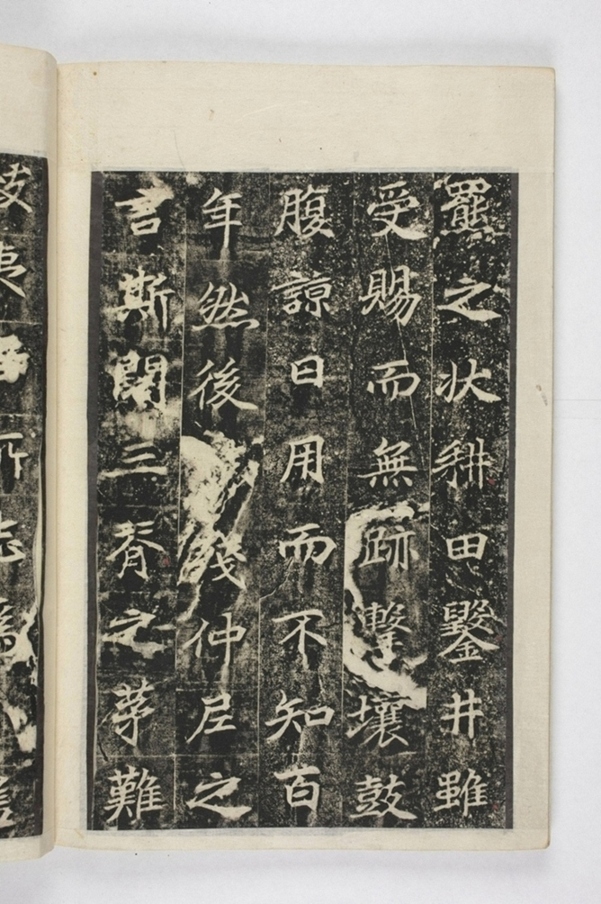 羆之狀耕田鑿井雖
受賜而無跡擊壤鼓
腹諒日用而不知百
年然後仲尼之
言斯三脊之茅難